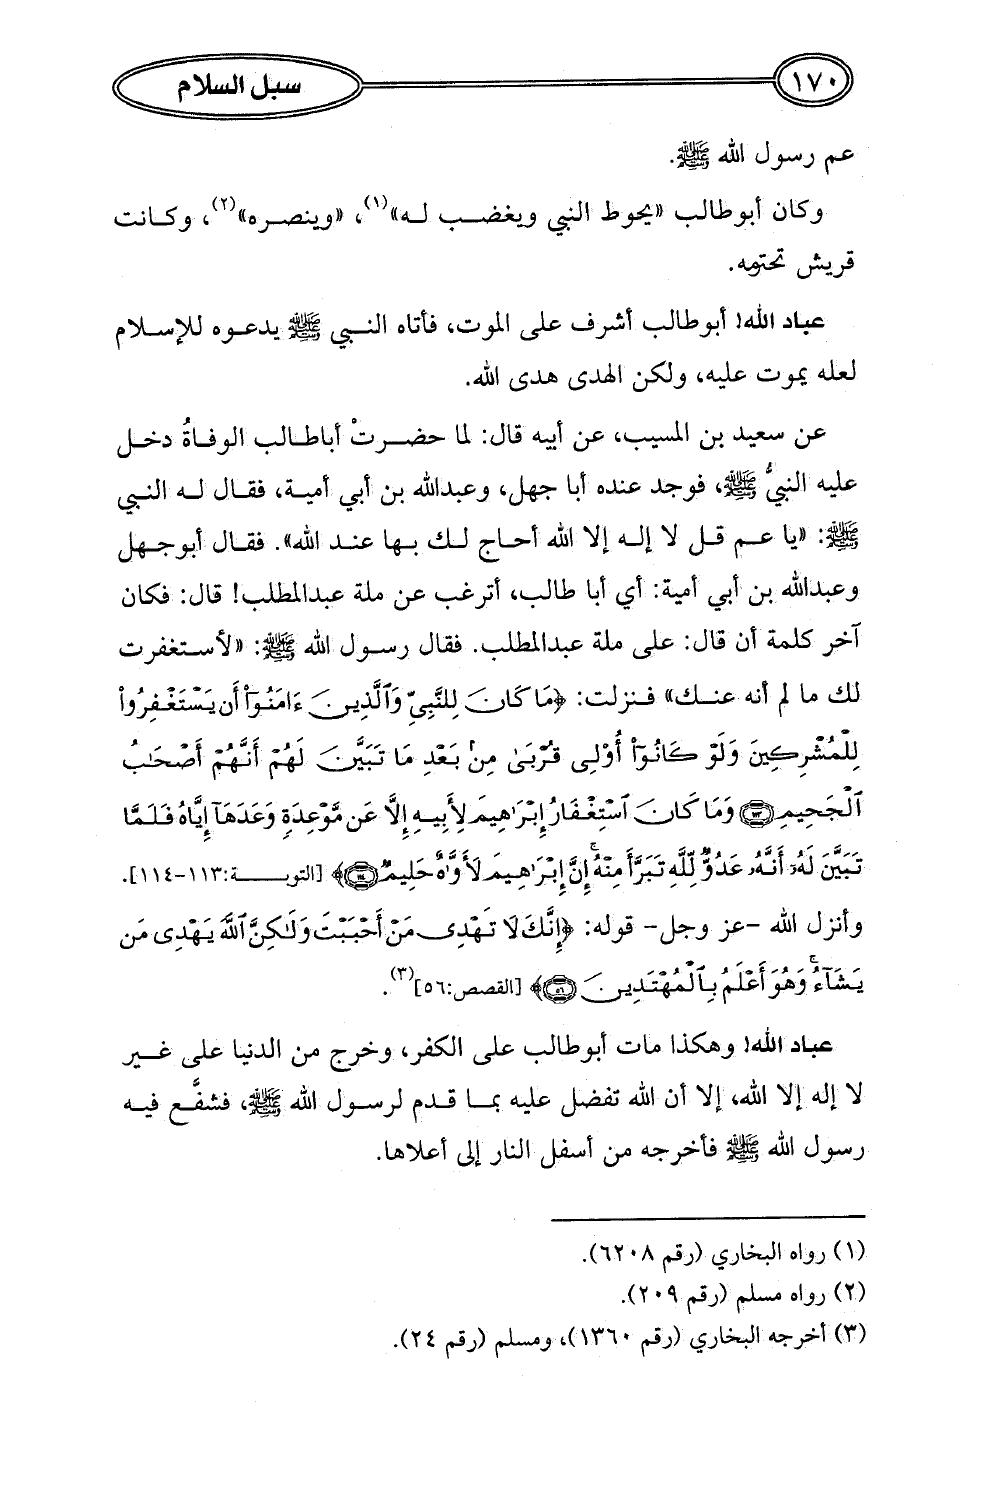 ١٧٠
سبل السلام
عم رسول الله ﷺ.
وكان أبوطالب «يحوط النبي ويغضب له»(١)، «وينصره»(٢)، وكانت
قريش تحتومه.
عباد الله! أبوطالب أشرف على الموت، فأتاه النبي ﷺ يدعوه للإسلام
لعله يموت عليه، ولكن الهدى هدى الله.
عن سعيد بن المسيب، عن أبيه قال: لما حضرتْ أباطالب الوفاةُ دخل
عليه النبيُّ ﷺ، فوجد عنده أبا جهل، وعبدالله بن أبي أمية، فقال له النبي
ﷺ: «يا عم قل لا إله إلا الله أحاج لك بها عند الله». فقال أبوجهل
وعبدالله بن أبي أمية: أي أبا طالب، أترغب عن ملة عبدالمطلب! قال: فكان
آخر كلمة أن قال: على ملة عبدالمطلب. فقال رسول الله ﷺ: «لأستغفرت
لك ما لم أنه عنك» فنزلت: ﴿مَا كَانَ لِلنَّبِيِّ وَٱلَّذِينَ ءَامَنُوٓا۟ أَن يَسْتَغْفِرُوا۟
لِلْمُشْرِكِينَ وَلَوْ كَانُوٓا۟ أُو۟لِى قُرْبَىٰ مِنۢ بَعْدِ مَا تَبَيَّنَ لَهُمْ أَنَّهُمْ أَصْحَٰبُ
ٱلْجَحِيمِ ١١٣ وَمَا كَانَ ٱسْتِغْفَارُ إِبْرَٰهِيمَ لِأَبِيهِ إِلَّا عَن مَّوْعِدَةٍ وَعَدَهَآ إِيَّاهُ فَلَمَّا
تَبَيَّنَ لَهُۥٓ أَنَّهُۥ عَدُوٌّ لِّلَّهِ تَبَرَّأَ مِنْهُ ۚ إِنَّ إِبْرَٰهِيمَ لَأَوَّٰهٌ حَلِيمٌ ١١٤﴾ [التوبة:١١٣-١١٤].
وأنزل الله -عز وجل- قوله: ﴿إِنَّكَ لَا تَهْدِى مَنْ أَحْبَبْتَ وَلَٰكِنَّ ٱللَّهَ يَهْدِى مَن
يَشَآءُ ۚ وَهُوَ أَعْلَمُ بِٱلْمُهْتَدِينَ ٥٦﴾ [القصص:٥٦](٣).
عباد الله! وهكذا مات أبوطالب على الكفر، وخرج من الدنيا على غير
لا إله إلا الله، إلا أن الله تفضل عليه بما قدم لرسول الله ﷺ، فشفَّع فيه
رسول الله ﷺ فأخرجه من أسفل النار إلى أعلاها.
(١) رواه البخاري (رقم ٦٢٠٨).
(٢) رواه مسلم (رقم ٢٠٩).
(٣) أخرجه البخاري (رقم ١٣٦٠)، ومسلم (رقم ٢٤).